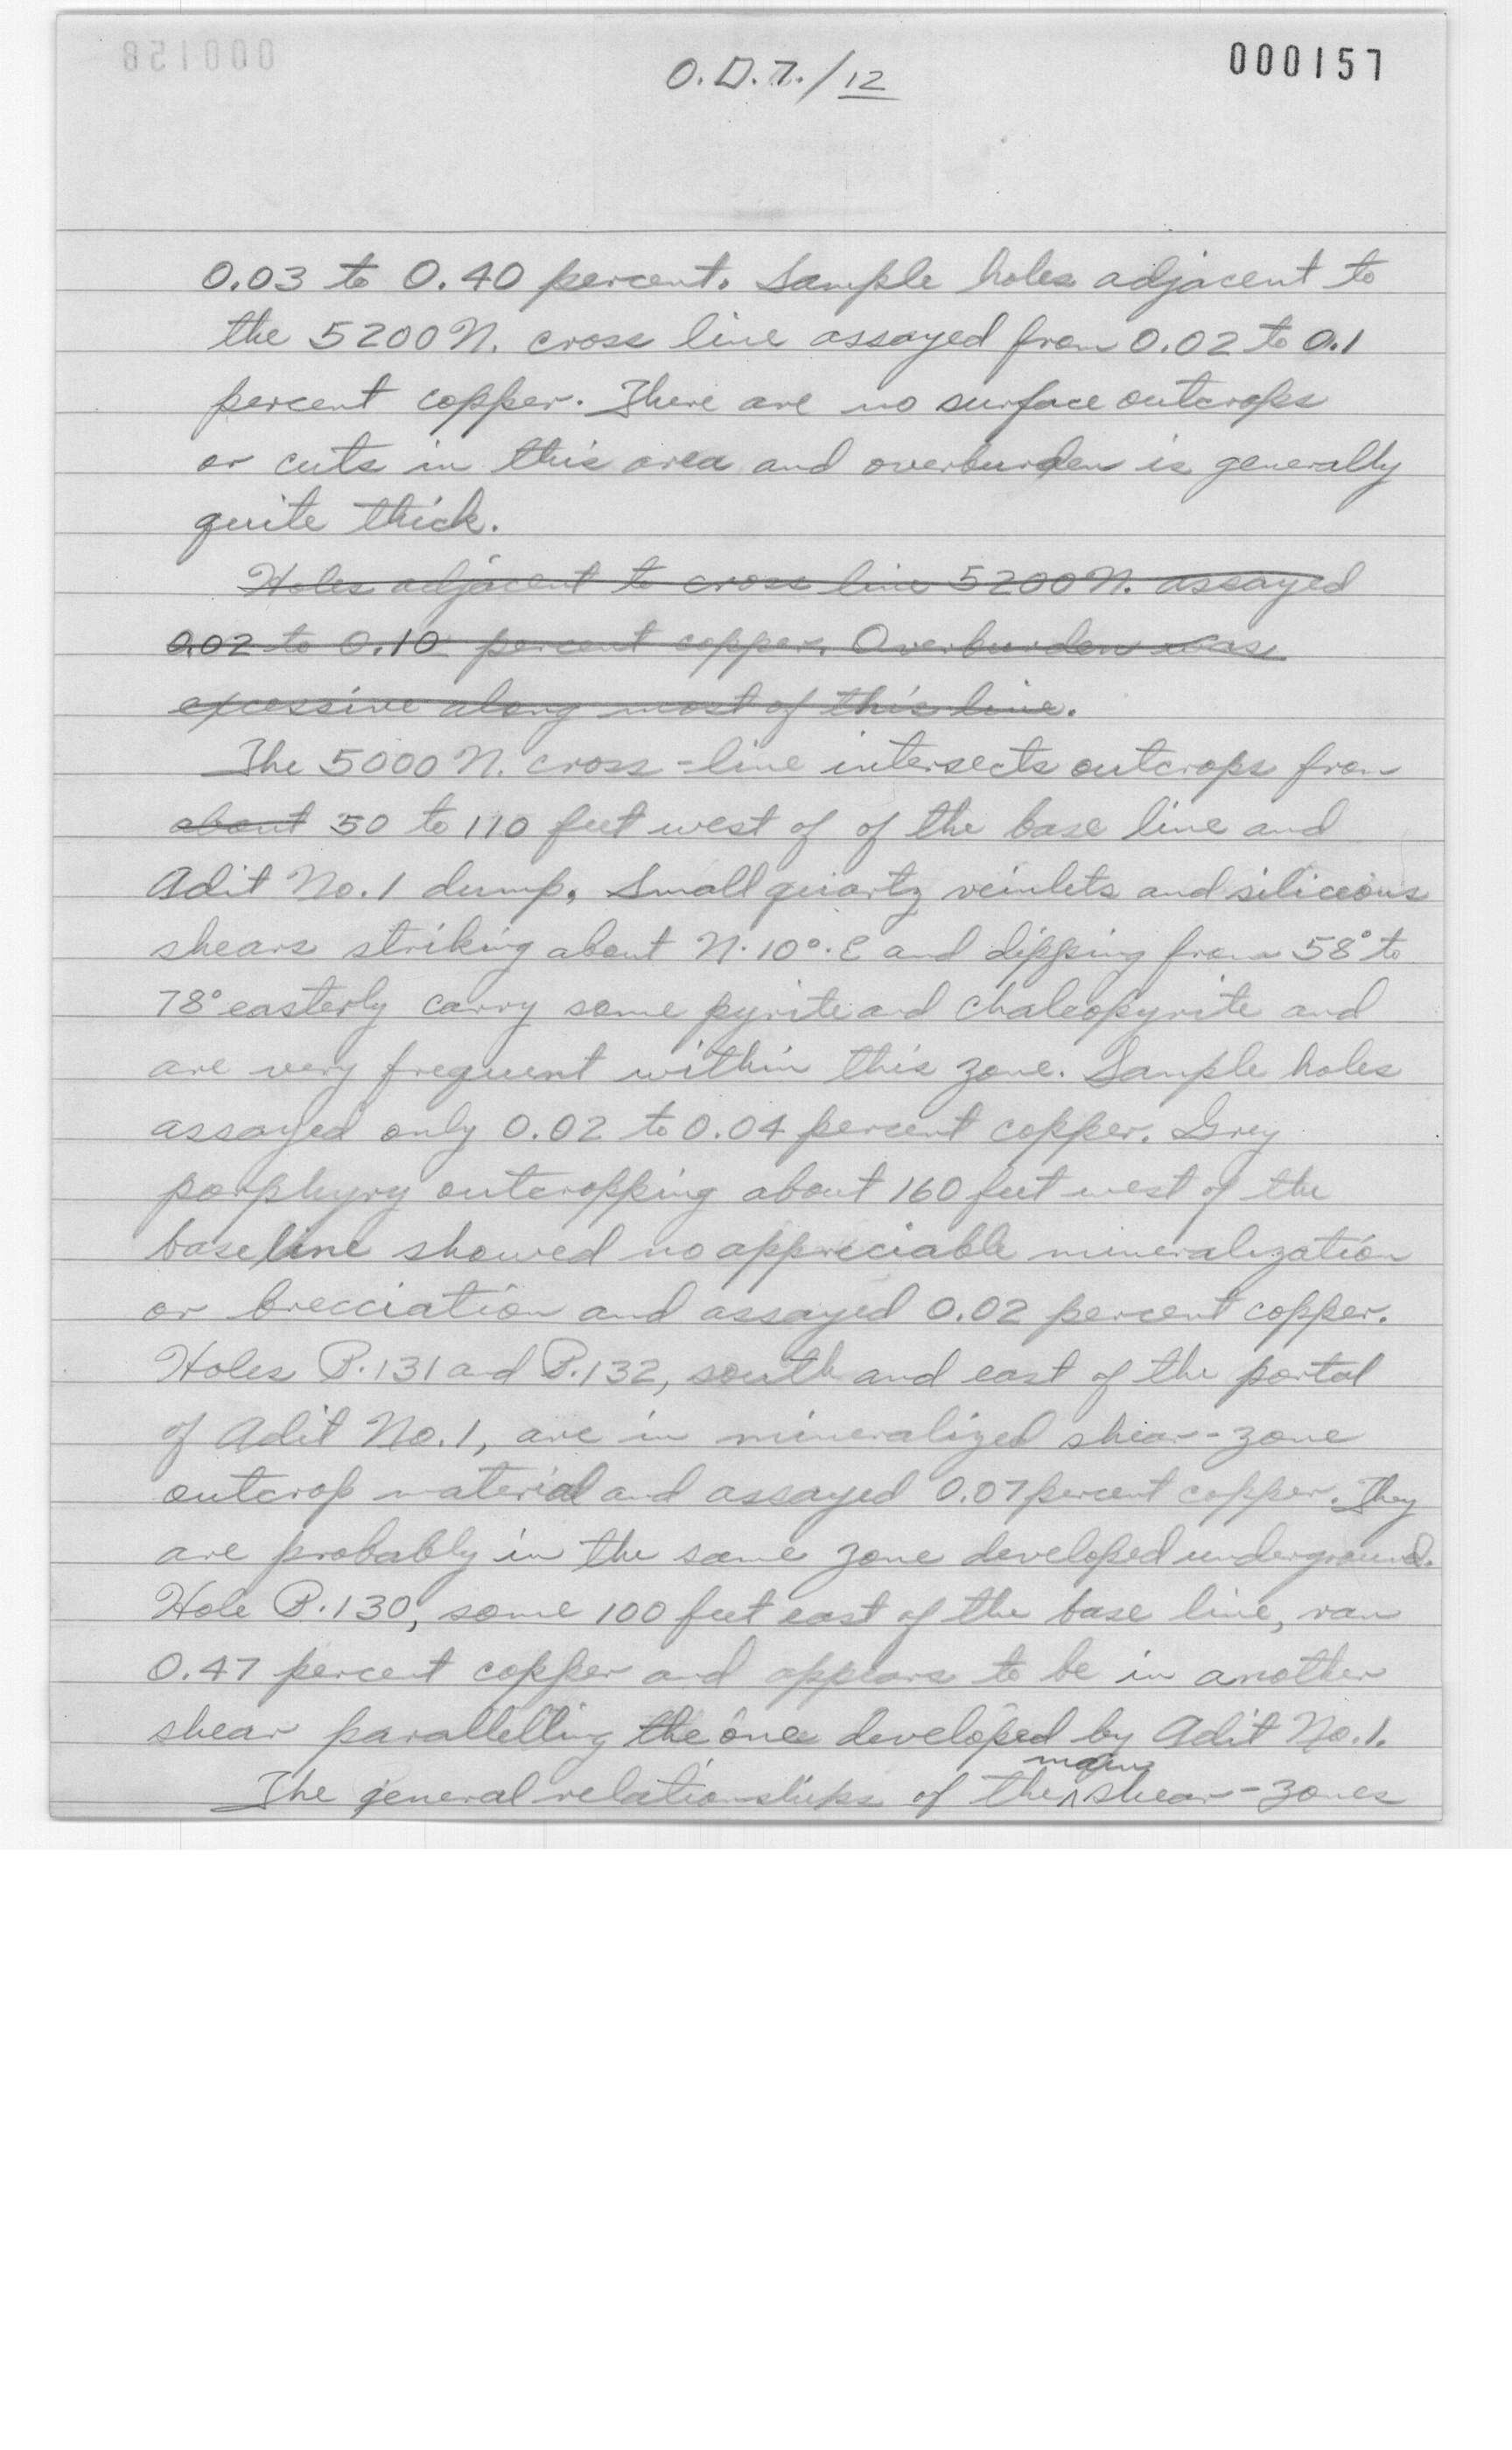 000158
O.D.7./12
000157
0.03 to 0.40 percent. Sample holes adjacent to
the 5200 N. cross line assayed from 0.02 to 0.1
percent copper. There are no surface outcrops
or cuts in this area and overburden is generally
quite thick.
Holes adjacent to cross line 5200 N. assayed
0.02 to 0.10 percent copper. Overburden was
excessive along most of this line.
The 5000 N. cross-line intersects outcrops from
about 50 to 110 feet west of of the base line and
Adit No. 1 dump. Small quartz veinlets and siliceous
shears striking about N. 10°. E and dipping from 58° to
78° easterly carry some pyrite and chalcopyrite and
are very frequent within this zone. Sample holes
assayed only 0.02 to 0.04 percent copper. Grey
porphyry outcropping about 160 feet west of the
baseline showed no appreciable mineralization
or brecciation and assayed 0.02 percent copper.
Holes P.131 and P.132, south and east of the portal
of Adit No. 1, are in mineralized shear-zone
outcrop material and assayed 0.07 percent copper. They
are probably in the same zone developed underground.
Hole P.130, some 100 feet east of the base line, ran
0.47 percent copper and appears to be in another
shear parallelling the one developed by Adit No. 1.
main
The general relationships of the ^ shear-zones